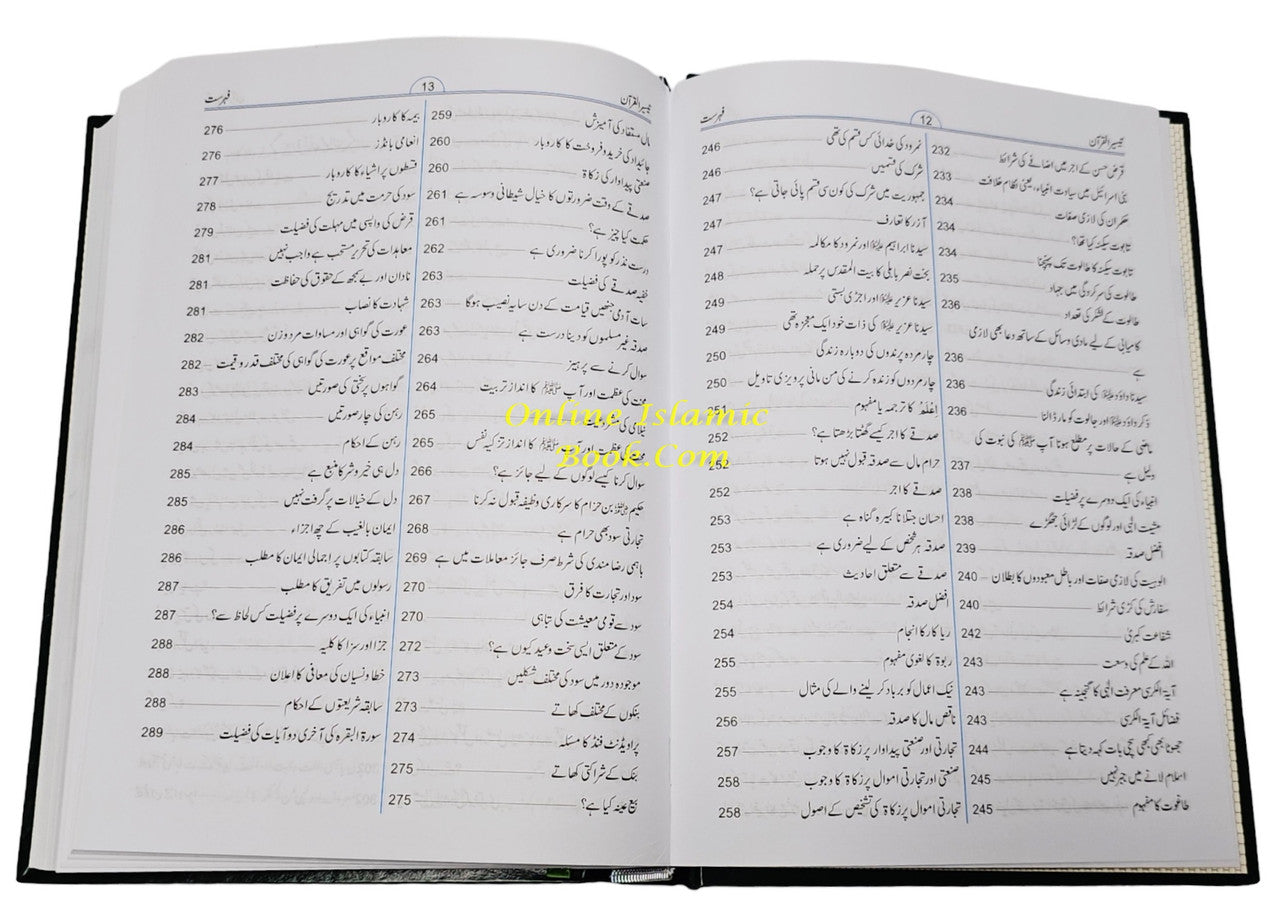 تیسیر القرآن 12 فہرست
قرض حسن کے اجر میں اضافے کی شرائط 232
بنی اسرائیل میں سیادت انبیاء، یعنی نظام خلافت 233
حکمران کی لازمی صفات 234
تابوت سکینہ کیا تھا؟ 234
تابوت سکینہ کا طالوت تک پہنچنا 234
طالوت کی سرکردگی میں جہاد 235
طالوت کے لشکر کی تعداد 236
کامیابی کے لیے مادی وسائل کے ساتھ دعا بھی لازمی
ہے 236
سیدنا داؤد علیہ السلام کی ابتدائی زندگی 236
ذکر داؤد علیہ السلام اور جالوت کو مار ڈالنا 236
ماضی کے حالات پر مطلع ہونا آپ ﷺ کی نبوت کی
دلیل ہے 237
انبیاء کی ایک دوسرے پر فضیلت 238
مشیت الٰہی اور لوگوں کے لڑائی جھگڑے 238
افضل صدقہ 239
الوہیت کی لازمی صفات اور باطل معبودوں کا بطلان 240
سفارش کی کڑی شرائط 240
شفاعت کبریٰ 242
اللہ کے علم کی وسعت 243
آیۃ الکرسی معرفت الٰہی کا گنجینہ ہے 243
فضائل آیۃ الکرسی 243
جھوٹا بھی کبھی سچی بات کہہ دیتا ہے 244
اسلام لانے میں جبر نہیں 245
طاغوت کا مفہوم 245
نمرود کی خدائی کس قسم کی تھی 246
شرک کی قسمیں 246
جمہوریت میں شرک کی کون سی قسم پائی جاتی ہے؟ 247
آزر کا تعارف 247
سیدنا ابراہیم علیہ السلام اور نمرود کا مکالمہ 247
بخت نصر بابلی کا بیت المقدس پر حملہ 248
سیدنا عزیر علیہ السلام اور اجڑی بستی 249
سیدنا عزیر علیہ السلام کی ذات خود ایک معجزہ تھی 249
چار مردہ پرندوں کی دوبارہ زندگی 250
چار مردوں کو زندہ کرنے کی من مانی پرویزی تاویل 250
اِعْلَمْ کا ترجمہ یا مفہوم 251
صدقے کا اجر کیسے گھٹتا بڑھتا ہے؟ 252
حرام مال سے صدقہ قبول نہیں ہوتا 252
صدقے کا اجر 252
احسان جتلانا کبیرہ گناہ ہے 253
صدقہ ہر شخص کے لیے ضروری ہے 253
صدقے سے متعلق احادیث 253
افضل صدقہ 254
ریا کار کا انجام 254
ربوۃ کا لغوی مفہوم 255
نیک اعمال کو برباد کر لینے والے کی مثال 255
ناقص مال کا صدقہ 256
تجارتی اور صنعتی پیداوار پر زکاۃ کا وجوب 257
صنعتی اور تجارتی اموال پر زکاۃ کا وجوب 258
تجارتی اموال پر زکاۃ کی تشخیص کے اصول 258
تیسیر القرآن 13 فہرست
مال مستفاد کی آمیزش 259
جائیداد کی خرید و فروخت کا کاروبار 260
صنعتی پیداوار کی زکاۃ 260
صدقے کے وقت ضرورتوں کا خیال شیطانی وسوسہ ہے 261
حکمت کیا چیز ہے؟ 261
درست نذر کو پورا کرنا ضروری ہے 262
خفیہ صدقے کی فضیلت 263
سات آدمی جنھیں قیامت کے دن سایہ نصیب ہوگا 263
صدقہ غیر مسلموں کو دینا درست ہے 263
سوال کرنے سے پرہیز 264
محنت کی عظمت اور آپ ﷺ کا انداز تربیت 264
نیلامی کی 265
کی عظمت اور آپ ﷺ کا انداز تزکیہ نفس 265
سوال کرنا کیسے لوگوں کے لیے جائز ہے؟ 266
حکیم رضی اللہ عنہ بن حزام کا سرکاری وظیفہ قبول نہ کرنا 267
تجارتی سود بھی حرام ہے 268
باہمی رضا مندی کی شرط صرف جائز معاملات میں ہے 269
سود اور تجارت کا فرق 270
سود سے قومی معیشت کی تباہی 270
سود کے متعلق ایسی سخت وعید کیوں ہے؟ 272
موجودہ دور میں سود کی مختلف شکلیں 273
بنکوں کے مختلف کھاتے 273
پراویڈنٹ فنڈ کا مسئلہ 274
بنک کے شراکتی کھاتے 275
بیع عینہ کیا ہے؟ 275
بیمہ کا کاروبار 276
انعامی بانڈز 276
قسطوں پر اشیاء کا کاروبار 277
سود کی حرمت میں تدریج 278
قرض کی واپسی میں مہلت کی فضیلت 279
معاملات کی تحریر مستحب ہے واجب نہیں 281
نادان اور بے سمجھ کے حقوق کی حفاظت 281
شہادت کا نصاب 281
عورت کی گواہی اور مساوات مرد و زن 282
مختلف مواقع پر عورت کی گواہی کی مختلف قدر و قیمت 282
گواہوں پر سختی کی صورتیں 283
رہن کی چار صورتیں 284
رہن کے احکام 284
دل ہی خیر و شر کا منبع ہے 285
دل کے خیالات پر گرفت نہیں 285
ایمان بالغیب کے چھ اجزاء 286
سابقہ کتابوں پر اجمالی ایمان کا مطلب 286
رسولوں میں تفریق کا مطلب 287
انبیاء کی ایک دوسرے پر فضیلت کس لحاظ سے؟ 287
جزا اور سزا کا کلیہ 288
خطا و نسیان کی معافی کا اعلان 288
سابقہ شریعتوں کے احکام 288
سورۃ البقرہ کی آخری دو آیات کی فضیلت 289
Online Islamic
Book.Com